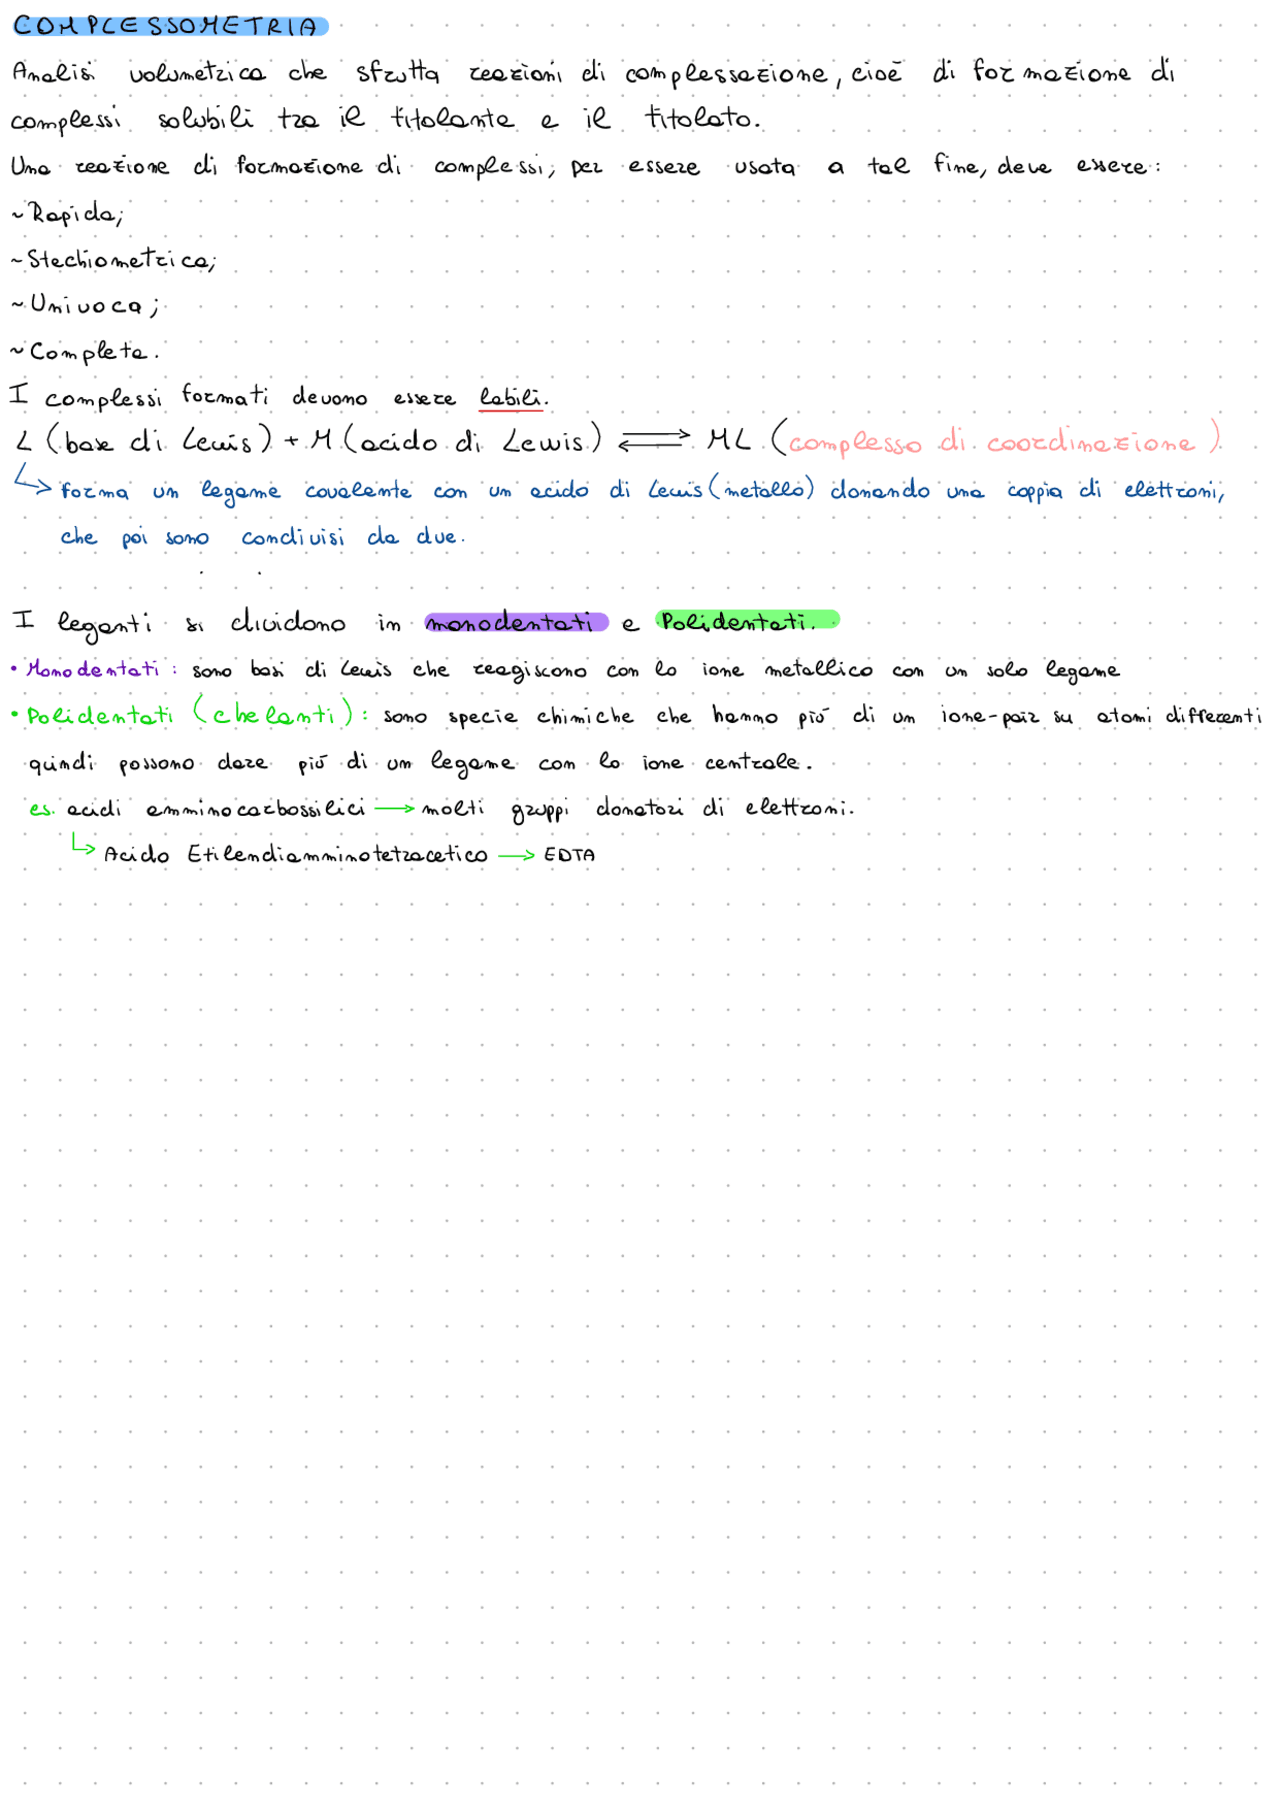 COMPLESSOMETRIA
Analisi volumetrica che sfrutta reazioni di complessazione, cioè di formazione di
complessi solubili tra il titolante e il titolato.
Una reazione di formazione di complessi, per essere usata a tal fine, deve essere:
~Rapida;
~Stechiometrica;
~Univoca;
~Completa.
I complessi formati devono essere labili.
L (base di Lewis) + M (acido di Lewis) ⇌ ML (complesso di coordinazione)
↳ forma un legame covalente con un acido di Lewis (metallo) donando una coppia di elettroni,
che poi sono condivisi da due.
I leganti si dividono in monodentati e Polidentati.
• Monodentati: sono basi di Lewis che reagiscono con lo ione metallico con un solo legame
• Polidentati (chelanti): sono specie chimiche che hanno più di un ione-pair su atomi differenti
quindi possono dare più di un legame con lo ione centrale.
es. acidi amminocarbossilici → molti gruppi donatori di elettroni.
↳ Acido Etilendiamminotetracetico → EDTA